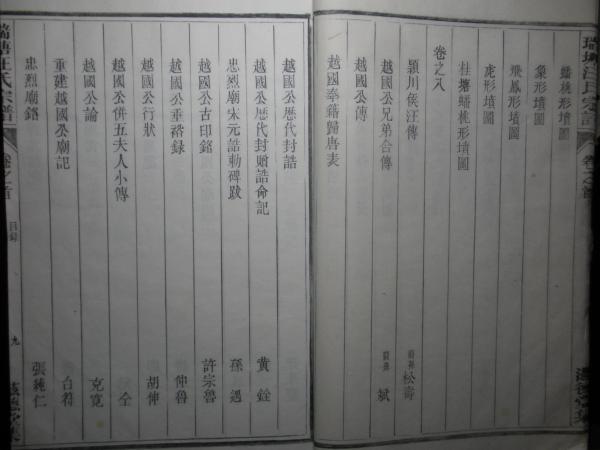 蟠桃形墳圖
象形墳圖
飛鳳形墳圖
虎形墳圖
桂塘蟠桃形墳圖
卷之八
潁川侯汪傳 裔孫 松壽
越國公兄弟合傳 裔孫 斌
越國公傳
越國奉籍歸唐表
越國公歷代封誥
越國公歷代封贈誥命記 黃銓
忠烈廟宋元誥勅碑跋 孫遇
越國公古印銘 許宗魯
越國公垂裕錄 仲魯
越國公行狀 胡伸
越國公併五夫人小傳 仝
越國公論 克寬
重建越國公廟記 台符
忠烈廟銘 張純仁
瑞塘汪氏宗譜
卷之首
目錄
九